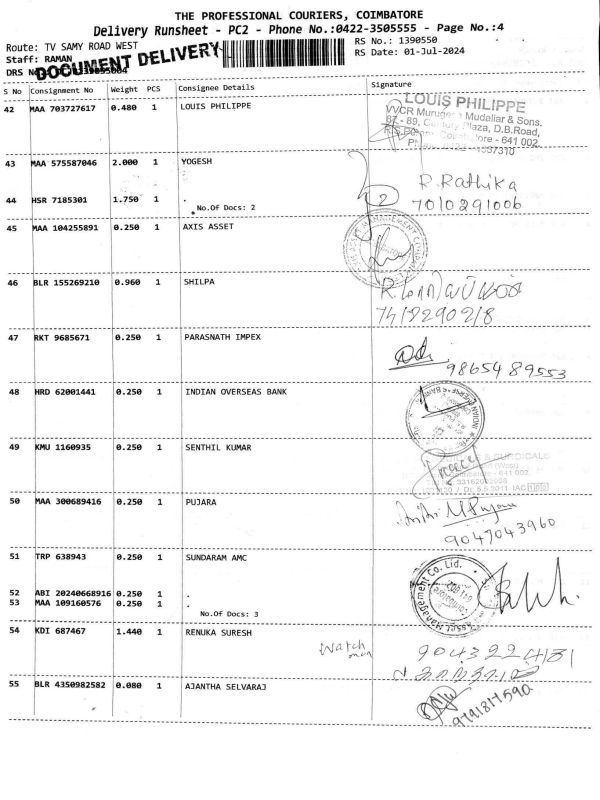 THE PROFESSIONAL COURIERS, COIMBATORE
Delivery Runsheet - PC2 - Phone No.:0422-3505555 - Page No.:4
Route: TV SAMY ROAD WEST
RS No.: 1390550
Staff: RAMAN
RS Date: 01-Jul-2024
DOCUMENT DELIVERY
DRS
S No Consignment No Weight PCS Consignee Details Signature
42 MAA 703727617 0.480 1 LOUIS PHILIPPE
LOUIS PHILIPPE
Mudaliar & Sons.
Plaza, D.B.Road,
641 002.
43 MAA 575587046 2.000 1 YOGESH
R. Rathika
44 HSR 7185301 1.750 1 .
No.Of Docs: 2
2
7010291006
45 MAA 104255891 0.250 1 AXIS ASSET
46 BLR 155269210 0.960 1 SHILPA
47 RKT 9685671 0.250 1 PARASNATH IMPEX
9865489553
48 HRD 62001441 0.250 1 INDIAN OVERSEAS BANK
49 KMU 1160935 0.250 1 SENTHIL KUMAR
& SURGICALS
50 MAA 300689416 0.250 1 PUJARA
9047043960
51 TRP 638943 0.250 1 SUNDARAM AMC
Asset Management Co. Ltd.
52 ABI 20240668916 0.250 1 .
53 MAA 109160576 0.250 1 .
No.Of Docs: 3
54 KDI 687467 1.440 1 RENUKA SURESH
watch
man
55 BLR 4350982582 0.080 1 AJANTHA SELVARAJ